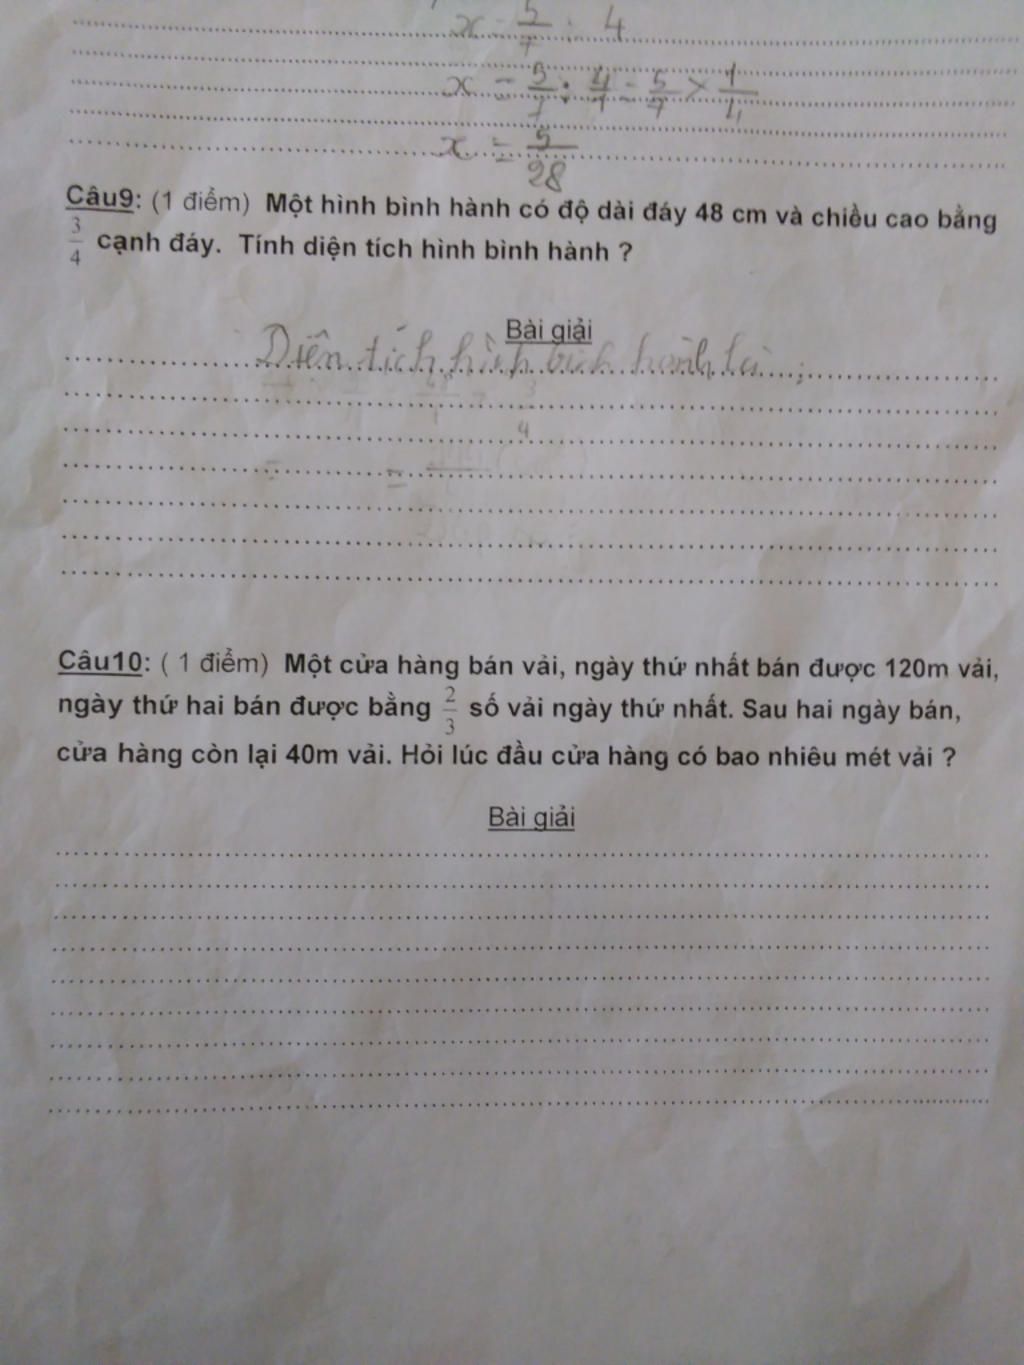 x = 5/7 : 4
x = 5/7 : 4/1 = 5/7 × 1/4
x = 5/28
Câu9: (1 điểm) Một hình bình hành có độ dài đáy 48 cm và chiều cao bằng
3/4 cạnh đáy. Tính diện tích hình bình hành ?
Bài giải
Diện tích hình bình hành là :
Câu10: ( 1 điểm) Một cửa hàng bán vải, ngày thứ nhất bán được 120m vải,
ngày thứ hai bán được bằng 2/3 số vải ngày thứ nhất. Sau hai ngày bán,
cửa hàng còn lại 40m vải. Hỏi lúc đầu cửa hàng có bao nhiêu mét vải ?
Bài giải